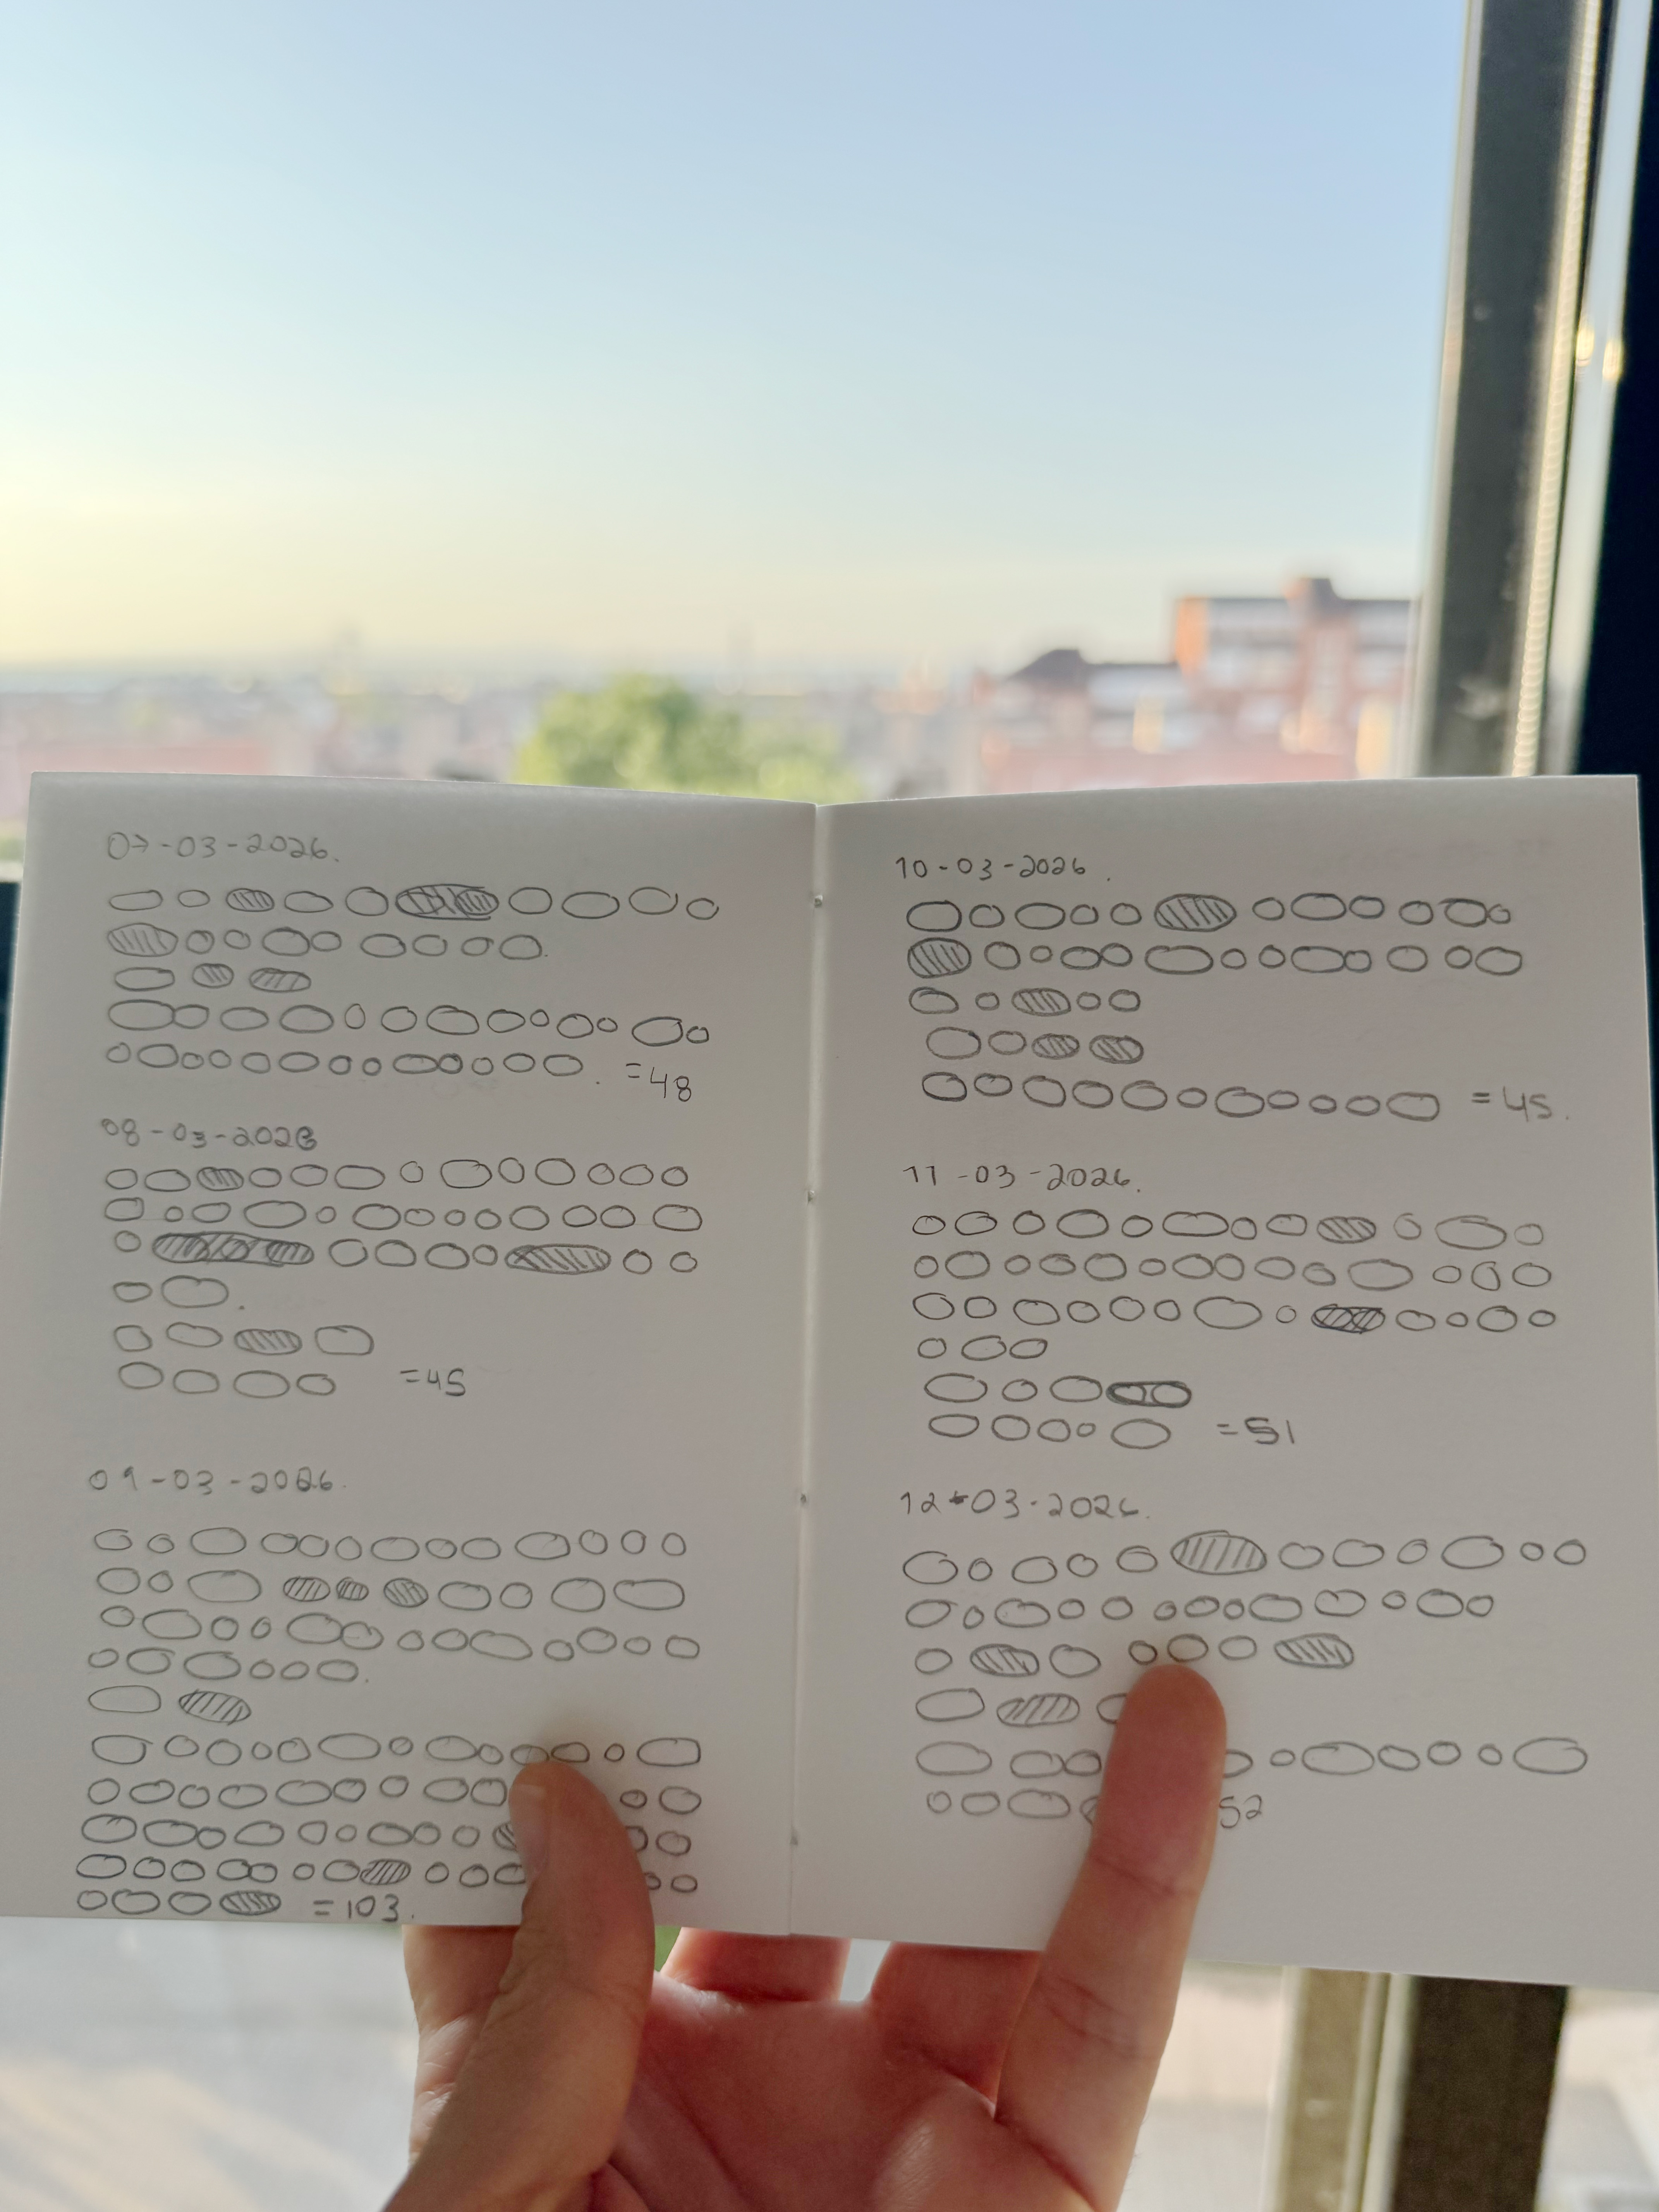 07-03-2026.
=48
08-03-2026
=45
09-03-2026.
=103.
10-03-2026.
=45.
11-03-2026.
=51
12-03-2026.
52